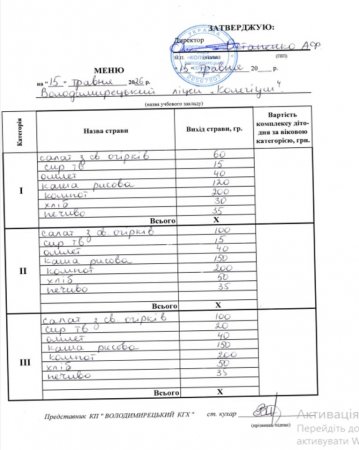 ЗАТВЕРДЖУЮ:
Директор
Остапенко А Ф
М.П. (ПІП)
"15" травня 20 р.
МЕНЮ
на "15" травня 2026 р.
Володимирецький ліцей "Колегіум"
(назва учбового закладу)
Категорія
Назва страви
Вихід страви, гр.
Вартість комплекту діто-дня за віковою категорією, грн.
I
салат з св огірків 60
сир тв 15
омлет 40
каша рисова 120
компот 200
хліб 30
печиво 35
Всього X
II
салат з св. огірків 100
сир тв 15
омлет 40
каша рисова 150
компот 200
хліб 50
печиво 35
Всього X
III
салат з св огірків 100
сир ТВ 20
омлет 40
каша рисова 150
компот 200
хліб 50
печиво 35
Всього X
Представник КП " ВОЛОДИМИРЕЦЬКИЙ КГХ " ст. кухар
(організації підпис)
Активація
Перейдіть до
активувати W